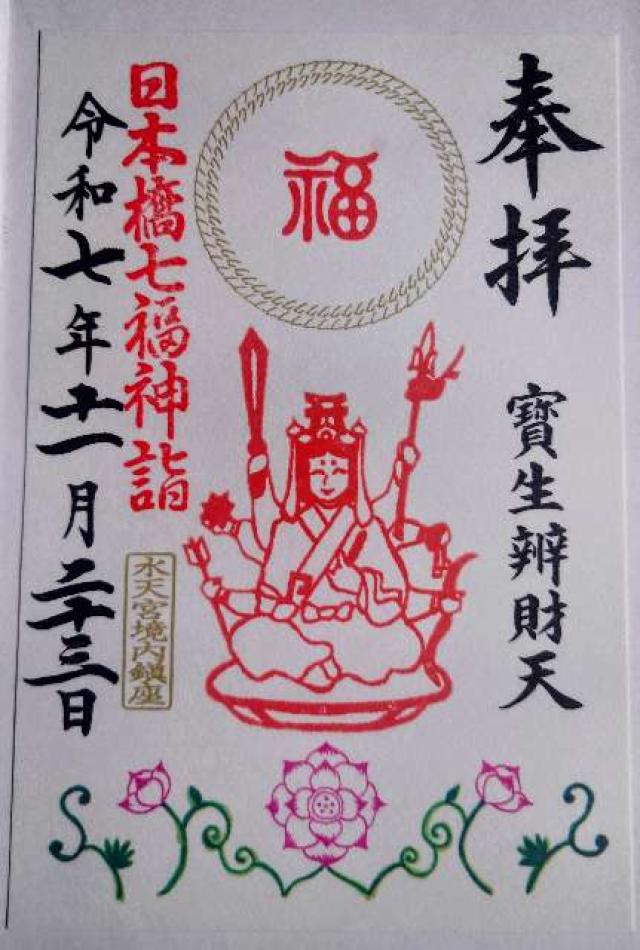 奉拝
寶生辨財天
福
日本橋七福神詣
水天宮境内鎮座
令和七年十一月二十三日